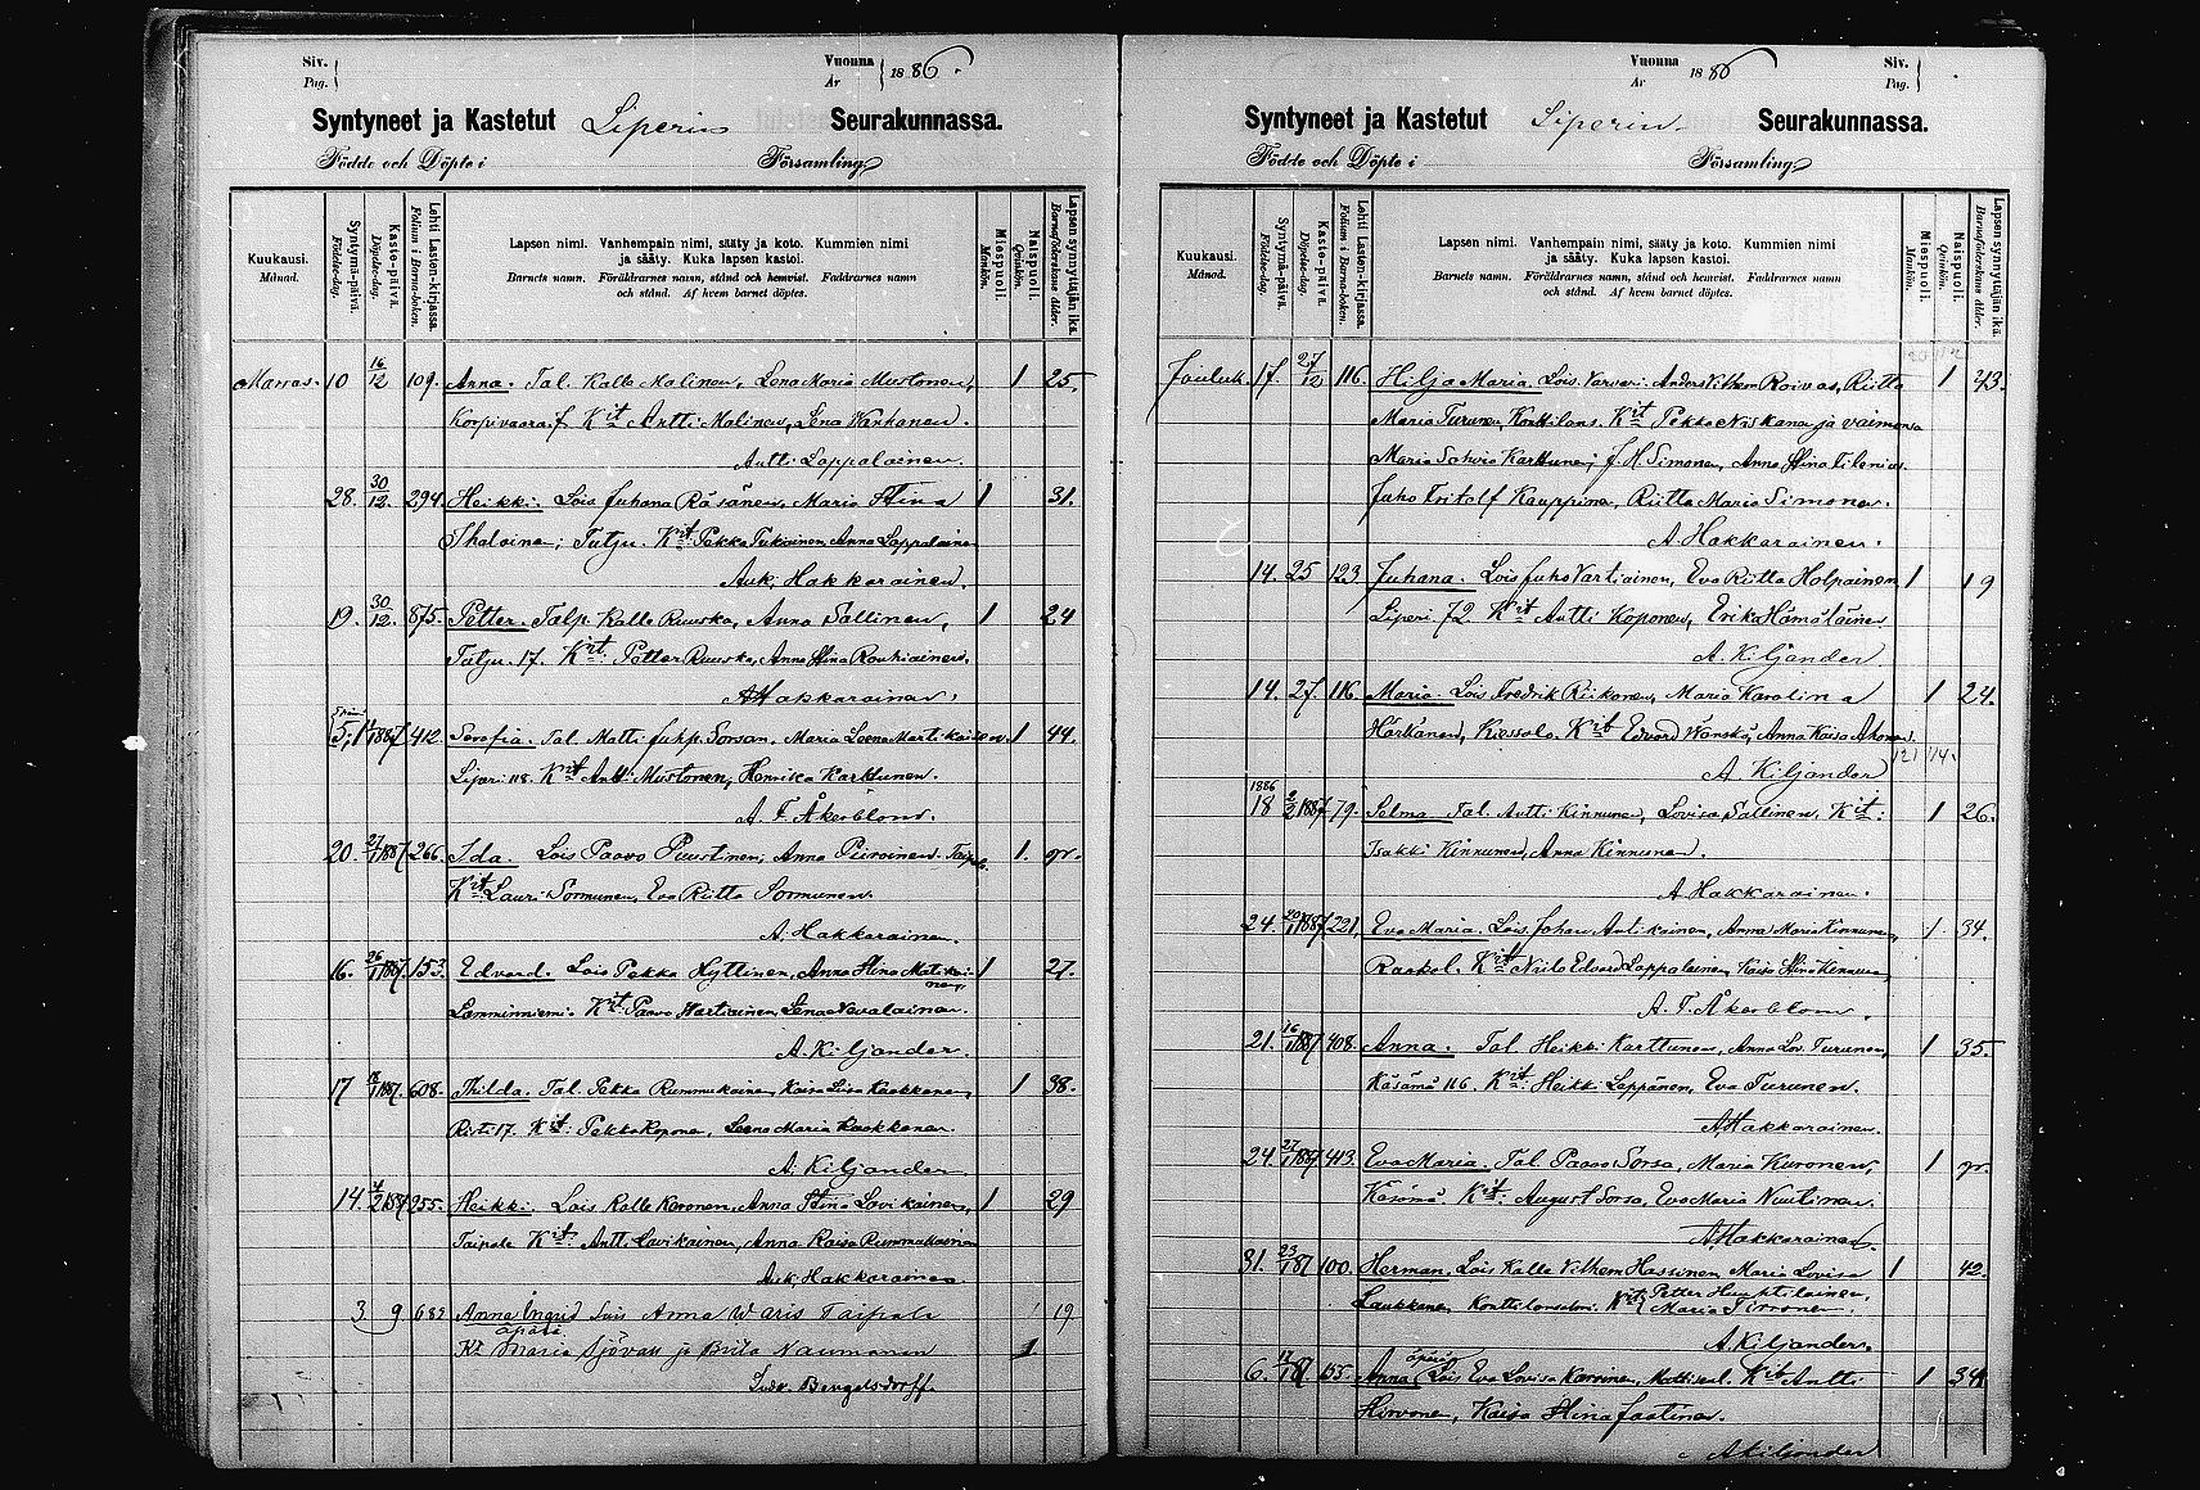 Siv.
Pag.
Vuonna
År
1886.
Syntyneet ja Kastetut Liperin Seurakunnassa.
Födde och Döpte i Församling
Kuukausi.
Månad.
Syntymä-päivä.
Födelse-dag.
Kaste-päivä.
Döpelse-dag.
Lehti Lasten-kirjassa.
Folium i Barna-boken.
Lapsen nimi. Vanhempain nimi, sääty ja koto. Kummien nimi
ja sääty. Kuka lapsen kastoi.
Barnets namn. Föräldrarnes namn, stånd och hemvist. Faddrarnes namn
och stånd. Af hvem barnet döptes.
Miespuoli.
Mankön.
Naispuoli.
Qvinkön.
Lapsen synnyttäjän ikä.
Barnaföderskans ålder.
Marras. 10 16/12 109. Anna. Tal. Kalle Malinen, Lena Maria Mustonen, 1 25.
Korpivaara. Kit Antti Malinen, Lena Vanhanen.
Antti Lappalainen.
28. 30/12. 294. Heikki. Lois Juhana Räsänen, Maria Stina 1 31.
Ihalaine; Tutju. Kit: Pekka Tukiainen, Anna Lappalainen
Auk. Hakkarainen.
19. 30/12. 875. Petter. Talp. Kalle Ruuska, Anna Sallinen, 1 24
Tutju. 17. Kit: Petter Ruuska, Anna Stina Rouhiainen.
A Hakkarainen.
5. 1/1 1887 412. Serafia. Tal. Matti Juhp. Sorsan, Maria Leena Martikainen. 1 44.
Liperi 118. Kit Antti Mustonen, Henrika Karttunen.
A. F. Åkerblom.
20. 27/1 1887 266. Ida. Lois Paavo Puustinen, Anna Piiroinen. Taipale. 1. gr.
Kit: Lauri Sormunen, Eva Riitta Sormunen.
A. Hakkarainen.
16. 26/1 1887. 153. Edvard. Lois Pekka Hyttinen, Anna Stina Matikai- 1 27.
nen,
Lamminniemi. Kit: Paavo Hartiainen, Lena Nevalainen.
A. Kiljander.
17 18/1 1887. 608. Thilda. Tal. Pekka Rummukainen, Kaisa Liisa Kaakkanen, 1 38.
Risti 17. Kit: Pekka Koponen, Leena Maria Kaakkanen.
A. Kiljander
14. 4/2 1887 255. Heikki. Lois Kalle Karonen, Anna Stina Lovikainen, 1 29
Taipale Kit: Antti Lavikainen, Anna Kaisa Rummukainen
Auk. Hakkarainen.
3 9 682 Anna Ingrid Lois Anna Waris Taipale 1 19
äpärä
Kt Maria Sjövall ja Brita Naumanen 1
Ludv. Bengelsdorff.
Vuonna
År
1886
Siv.
Pag.
Syntyneet ja Kastetut Liperin. Seurakunnassa.
Födde och Döpte i Församling
Kuukausi.
Månad.
Syntymä-päivä.
Födelse-dag.
Kaste-päivä.
Döpelse-dag.
Lehti Lasten-kirjassa.
Folium i Barna-boken.
Lapsen nimi. Vanhempain nimi, sääty ja koto. Kummien nimi
ja sääty. Kuka lapsen kastoi.
Barnets namn. Föräldrarnes namn, stånd och hemvist. Faddrarnes namn
och stånd. Af hvem barnet döptes.
Miespuoli.
Mankön.
Naispuoli.
Qvinkön.
Lapsen synnyttäjän ikä
Barnaföderskans ålder.
Jouluk. 17. 27/12 116. Hilja Maria. Lois. Varvari. Anders Vilhem Roivas, Riitta 1 43.
Maria Turunen, Konttilans. Kit Pekka Niskanen ja vaimonsa
Maria Sohvia Karttunen; J. H. Simonen, Anna Stina Tilenius.
Juho Fritolf Kauppinen, Riitta Maria Simonen.
A. Hakkarainen.
14. 25 123 Juhana. Lois Juho Vartiainen, Eva Riitta Holpainen 1 19
Liperi 72. Kit Antti Koponen, Erika Hämäläinen
A. Kiljander.
14. 27. 116 Maria. Lois Fredrik Riikonen, Maria Karolina 1 24.
Härkänen, Kiessalo. Kit Edvard Wänskä, Anna Kaisa Ahonen.
121 114.
A. Kiljander
1886
18 2/2 1887 79. Selma Tal. Antti Kinnunen, Lovisa Sallinen. Kit: 1 26.
Isakki Kinnunen, Anna Kinnunen.
A Hakkarainen.
24. 20/1 1887 221. Eva Maria. Lois. Johan Antikainen, Anna Maria Kinnunen, 1 34.
Raakol. Kit Niilo Edvard Lappalainen, Kaisa Stina Kinnunen
A. F. Åkerblom.
21. 16/1 1887 408. Anna. Tal. Heikki Karttunen, Anna Lov. Turunen, 1 35.
Käsämä 116. Kit: Heikki Leppänen, Eva Turunen.
A Hakkarainen.
24. 27/1 1887 413. Eva Maria. Tal. Paavo Sorsa, Maria Kuronen, 1 gr.
Käsämä. Kit: August Sorsa, Eva Maria Nuutinen.
A Hakkarainen.
31. 23/1 87 100. Herman. Lois Kalle Vilhem Hassinen, Maria Lovisa 1 42.
Laukkanen Konttilansalmi. Kit: Petter Huuhtilainen,
Maria Tirronen.
A. Kiljander.
6. 17/1 87. 155. Anna äpärä Lois Eva Lovisa Karvinen, Mattisal. Kit Antti 1 34
Hirvonen, Kaisa Stina Jaatinen.
A Kiljander